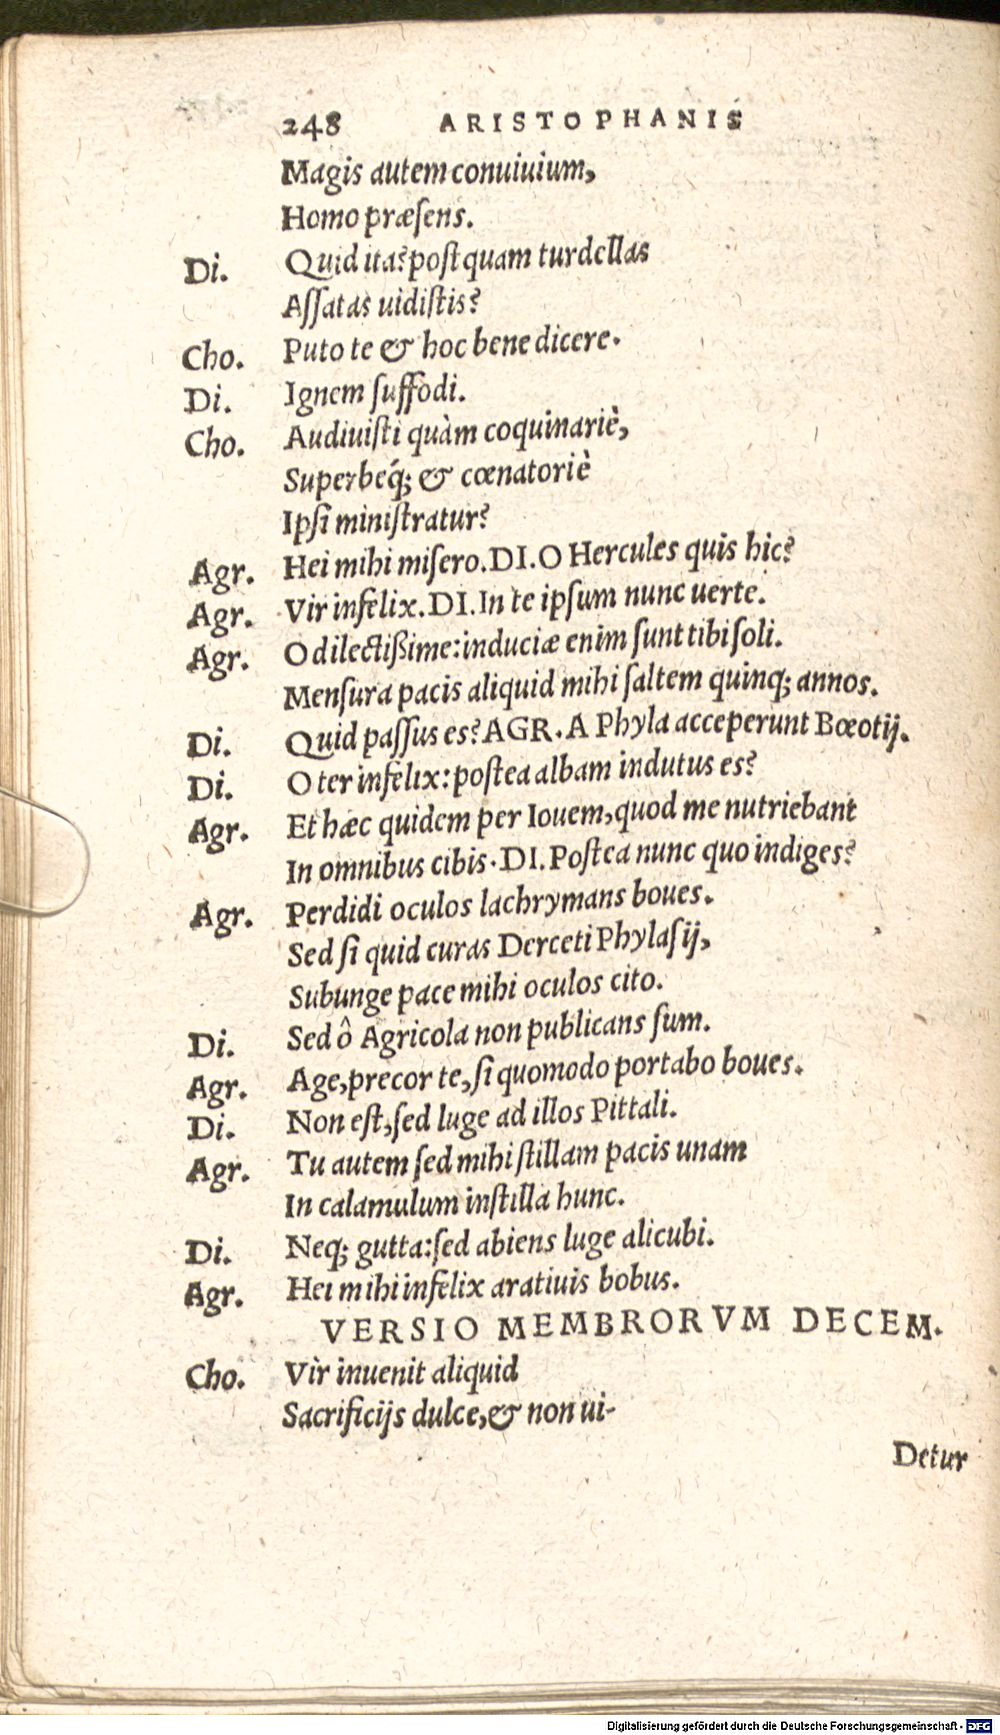 248 ARISTOPHANIS
Magis autem conuiuium,
Homo præſens.
Di. Quid ita? poſt quam turdellas
Aſſatas uidiſtis?
Cho. Puto te & hoc bene dicere.
Di. Ignem ſuffodi.
Cho. Audiuiſti quàm coquinariè,
Superbeq́; & cœnatoriè
Ipſi miniſtratur?
Agr. Hei mihi miſero. DI. O Hercules quis hic?
Agr. Vir infelix. DI. In te ipſum nunc uerte.
Agr. O dilectißime: induciæ enim ſunt tibi ſoli.
Menſura pacis aliquid mihi ſaltem quinq; annos.
Di. Quid paſſus es? AGR. A Phyla acceperunt Bœotij.
Di. O ter infelix: poſtea albam indutus es?
Agr. Et hæc quidem per Iouem, quod me nutriebant
In omnibus cibis. DI. Poſtea nunc quo indiges?
Agr. Perdidi oculos lachrymans boues.
Sed ſi quid curas Derceti Phylaſij,
Subunge pace mihi oculos cito.
Di. Sed ô Agricola non publicans ſum.
Agr. Age, precor te, ſi quomodo portabo boues.
Di. Non eſt, ſed luge ad illos Pittali.
Agr. Tu autem ſed mihi ſtillam pacis unam
In calamulum inſtilla hunc.
Di. Neq; gutta: ſed abiens luge alicubi.
Agr. Hei mihi infelix aratiuis bobus.
VERSIO MEMBRORVM DECEM.
Cho. Vìr inuenit aliquid
Sacrificijs dulce, & non ui-
Detur
Digitalisierung gefördert durch die Deutsche Forschungsgemeinschaft - DFG